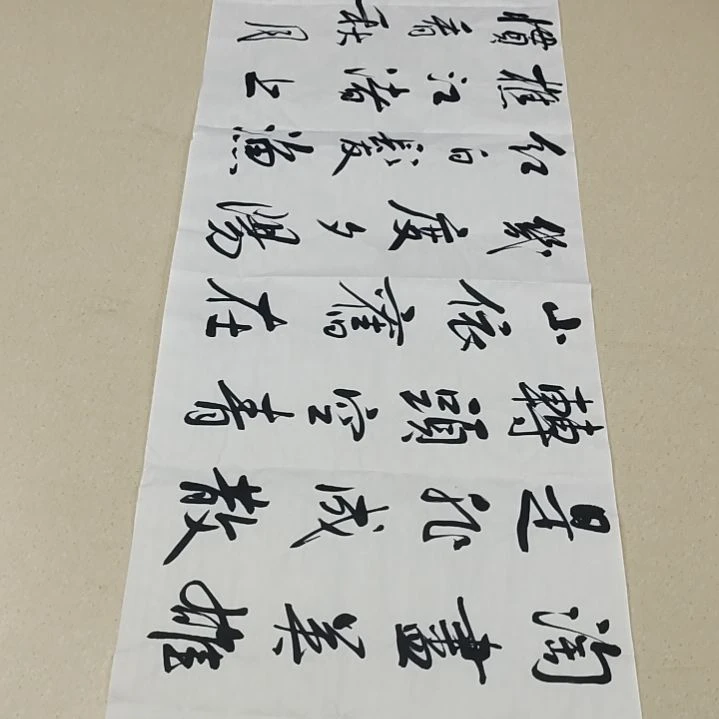 淘盡英雄
是非成敗
轉頭空青
山依舊在
幾度夕陽
紅白髮漁
樵江渚上
慣看秋月